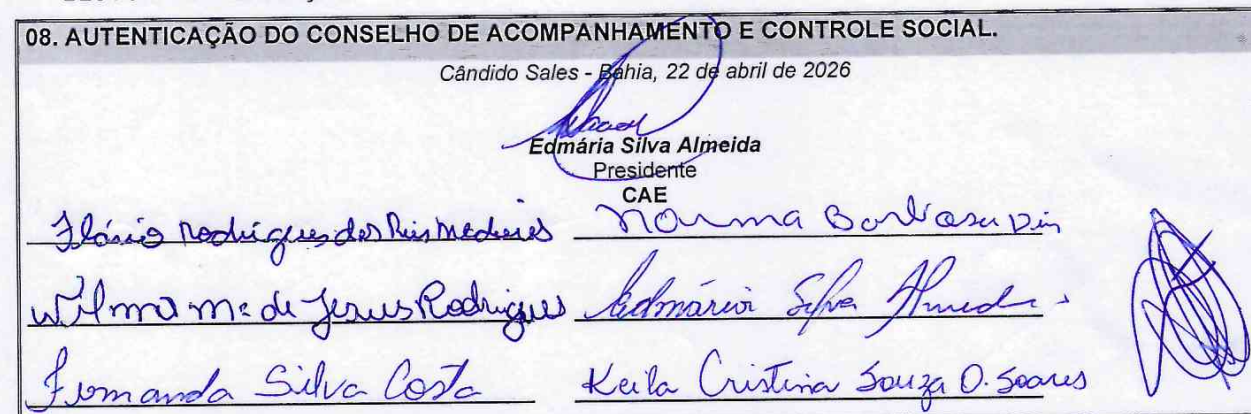 08. AUTENTICAÇÃO DO CONSELHO DE ACOMPANHAMENTO E CONTROLE SOCIAL.
Cândido Sales - Bahia, 22 de abril de 2026
Edmária Silva Almeida
Presidente
CAE
Flávio Rodrigues dos Reis Medeiros Norma Barbosa
Wilma Mª de Jesus Rodrigues Edmária Silva Almeida
Fernanda Silva Costa Keila Cristina Souza O. Soares